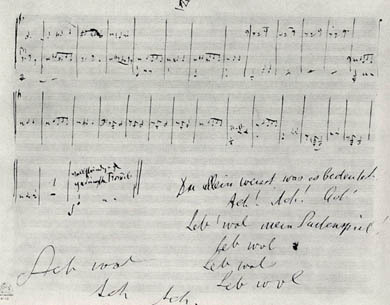 Du allein weisst was es bedeutet.
Ach! Ach! Ach!
Leb' wol mein Saitenspiel!
Leb wol
Leb wol
Leb wol
Leb wol
Ach Ach.